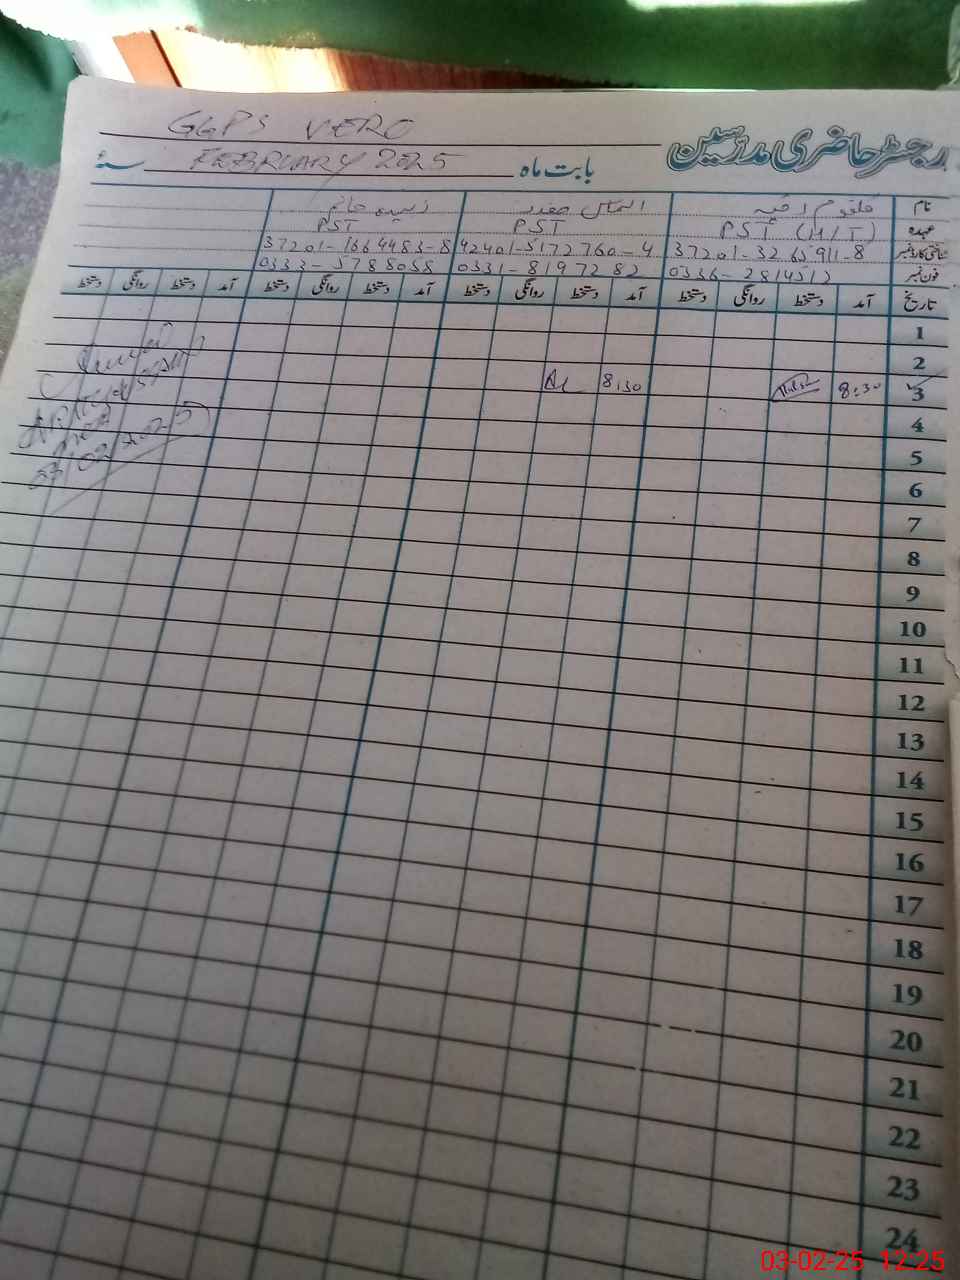 GGPS VERO
رجسٹر حاضری مدرسین
بابت ماہ FEBRUARY 2025 سنہ
نام
عہدہ PST (H/T) PST PST
شناختی کارڈ نمبر 37201-3265911-8 42401-5172760-4 37201-1664483-8
فون نمبر 0336-2814512 0331-8197282 0333-5788058
تاریخ آمد دستخط روانگی دستخط آمد دستخط روانگی دستخط آمد دستخط روانگی دستخط آمد دستخط روانگی دستخط
1
2
3 8:30 8:30
4
5
03/02/2025
6
7
8
9
10
11
12
13
14
15
16
17
18
19
20
21
22
23
24
03-02-25 12:25